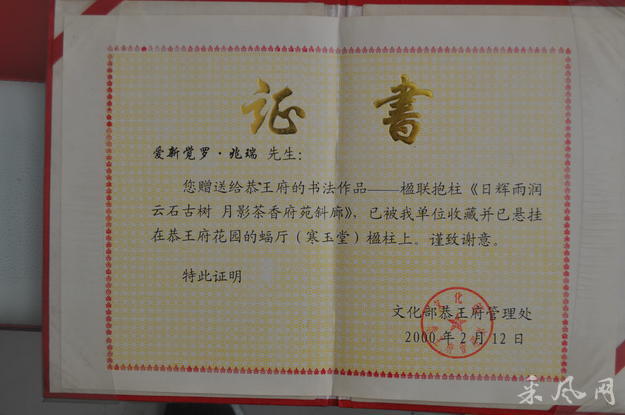 证 書
爱新觉罗·兆瑞 先生：
您赠送给恭王府的书法作品——楹联抱柱《日辉雨润
云石古树 月影茶香府苑斜廊》，已被我单位收藏并已悬挂
在恭王府花园的蝠厅（寒玉堂）楹柱上。谨致谢意。
特此证明
文化部恭王府管理处
2000年2月12日
采风网